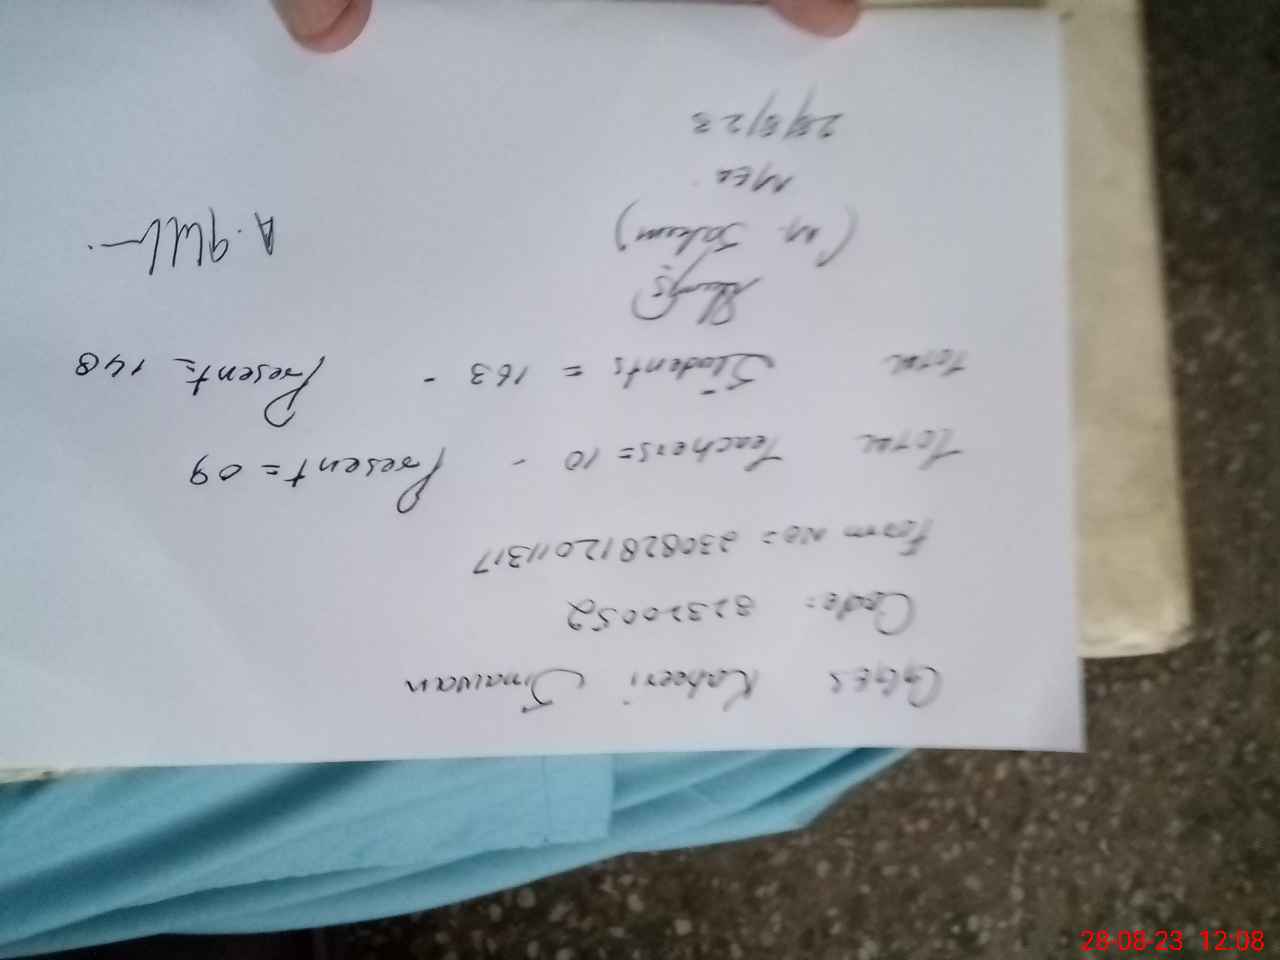 GGES Kabeeri Smawan
Code: 32320052
Form No = 23082812011317
Total Teachers = 10 - Present = 09
Total Students = 163 - Present = 148
(M. Saleem)
MEA
28/8/23
28-08-23 12:08